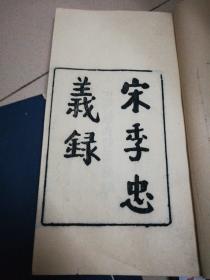 宋季忠
義録